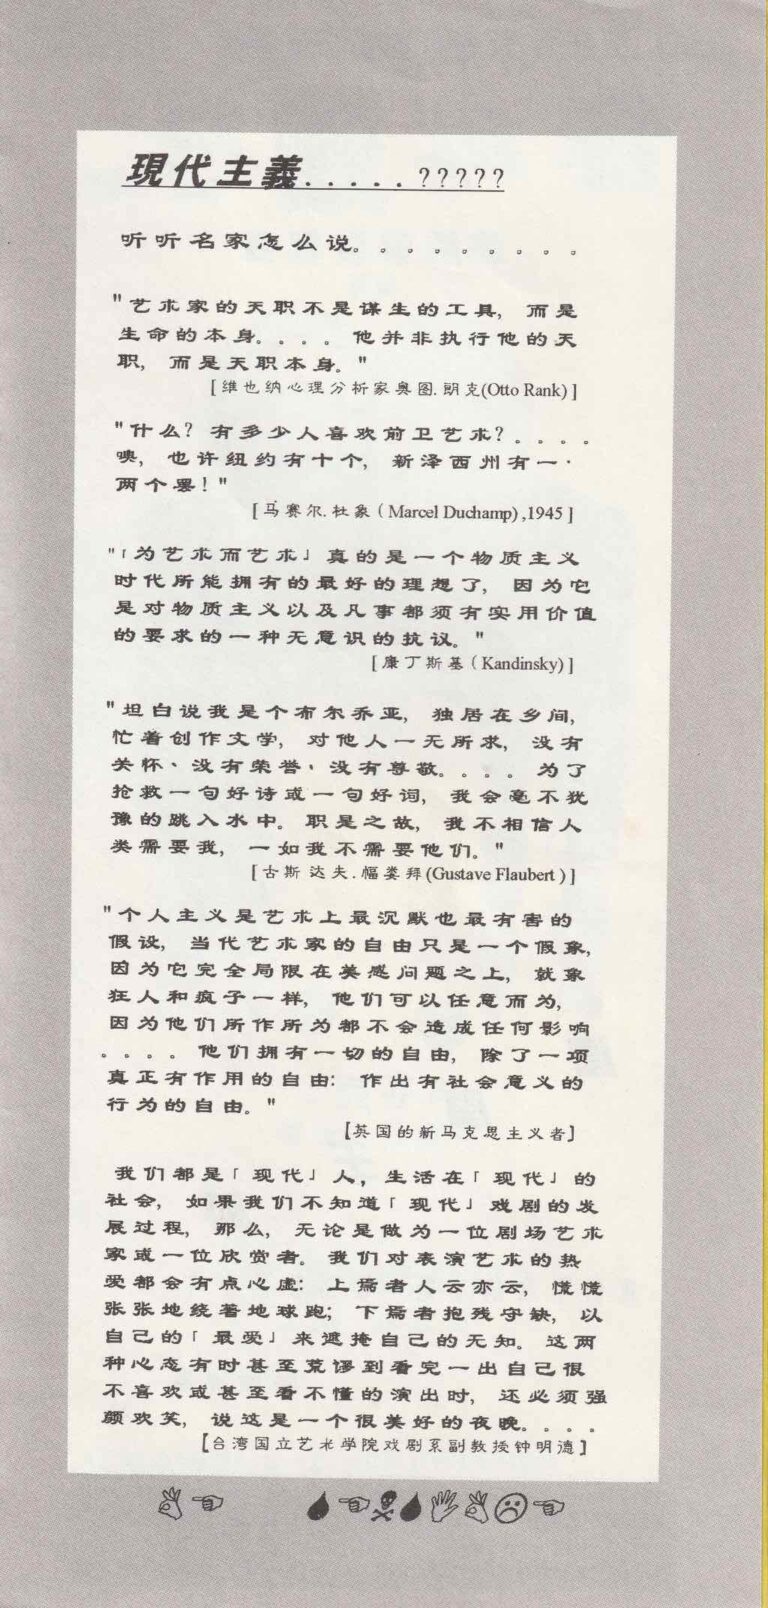 現代主義.....?????
听听名家怎么说。。。。。。。。。
"艺术家的天职不是谋生的工具, 而是
生命的本身。。。。他并非执行他的天
职, 而是天职本身。"
[维也纳心理分析家奥图.朗克(Otto Rank)]
"什么? 有多少人喜欢前卫艺术?。。。。
噢, 也许纽约有十个, 新泽西州有一·
两个罢!"
[马赛尔.杜象(Marcel Duchamp),1945]
"「为艺术而艺术」真的是一个物质主义
时代所能拥有的最好的理想了, 因为它
是对物质主义以及凡事都须有实用价值
的要求的一种无意识的抗议。"
[康丁斯基(Kandinsky)]
"坦白说我是个布尔乔亚, 独居在乡间,
忙着创作文学, 对他人一无所求, 没有
关怀、没有荣誉、没有尊敬。。。。为了
抢救一句好诗或一句好词, 我会毫不犹
豫的跳入水中。职是之故, 我不相信人
类需要我, 一如我不需要他们。"
[古斯达夫.幅娄拜(Gustave Flaubert)]
"个人主义是艺术上最沉默也最有害的
假设, 当代艺术家的自由只是一个假象,
因为它完全局限在美感问题之上, 就象
狂人和疯子一样, 他们可以任意而为,
因为他们所作所为都不会造成任何影响
。。。。他们拥有一切的自由, 除了一项
真正有作用的自由: 作出有社会意义的
行为的自由。"
[英国的新马克思主义者]
我们都是「现代」人, 生活在「现代」的
社会, 如果我们不知道「现代」戏剧的发
展过程, 那么, 无论是做为一位剧场艺术
家或一位欣赏者。我们对表演艺术的热
爱都会有点心虚: 上焉者人云亦云, 慌慌
张张地绕着地球跑; 下焉者抱残守缺, 以
自己的「最爱」来遮掩自己的无知。这两
种心态有时甚至荒谬到看完一出自己很
不喜欢或甚至看不懂的演出时, 还必须强
颜欢笑, 说这是一个很美好的夜晚。。。。
[台湾国立艺术学院戏剧系副教授钟明德]